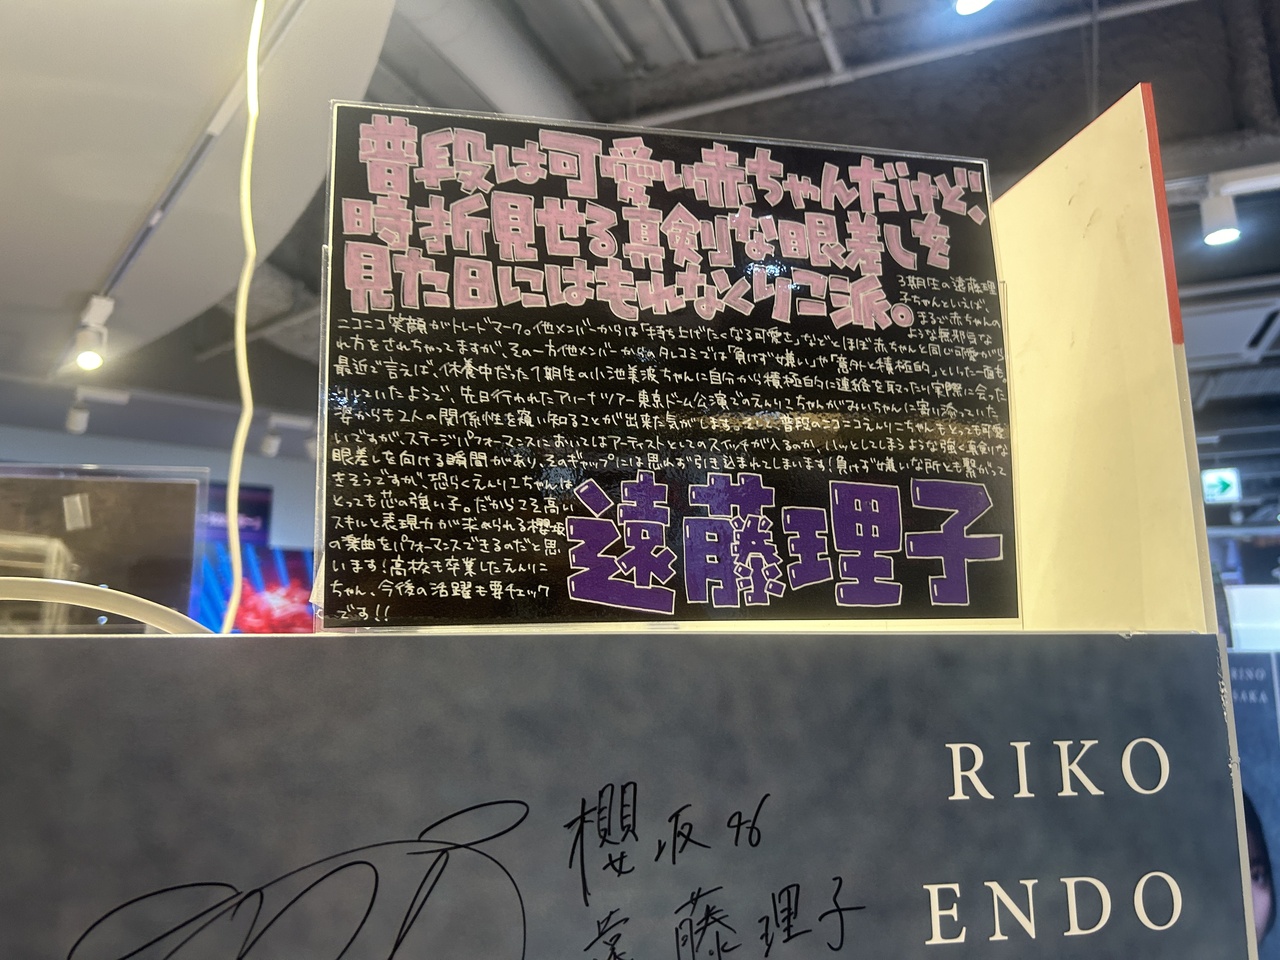 普段は可愛い赤ちゃんだけど、
時折見せる真剣な眼差しを
見た日にはもれなくりこ派。
3期生の遠藤理
子ちゃんといえば、
まるで赤ちゃんの
ような無邪気な
ニコニコ笑顔がトレードマーク。他メンバーからは「持ち上げたくなる可愛さ」などとほぼ赤ちゃんと同じ可愛がら
れ方をされちゃってますが、その一方他メンバーからのタレコミでは「負けず嫌い」や「意外と積極的」といった一面も。
最近で言えば、休養中だった1期生の小池美波ちゃんに自分から積極的に連絡を取ったり実際に会った
りしていたようで、先日行われたアリーナツアー東京ドーム公演でのえんりこちゃんがみいちゃんに寄り添っていた
姿からも2人の関係性を窺い知ることが出来た気がします。そして普段のニコニコえんりこちゃんもとっても可愛
いですが、ステージパフォーマンスにおいてはアーティストとしてのスイッチが入るのか、ハッとしてしまうような強く真剣な
眼差しを向ける瞬間があり、そのギャップには思わず引き込まれてしまいます!負けず嫌いな所とも繋がって
きそうですが、恐らくえんりこちゃんは
とっても芯の強い子。だからこそ高い
スキルと表現力が求められる櫻坂
の楽曲をパフォーマンスできるのだと思
います!高校も卒業したえんりこ
ちゃん、今後の活躍も要チェック
です!!
遠藤理子
RIKO
ENDO
櫻坂46
遠藤理子
RINO